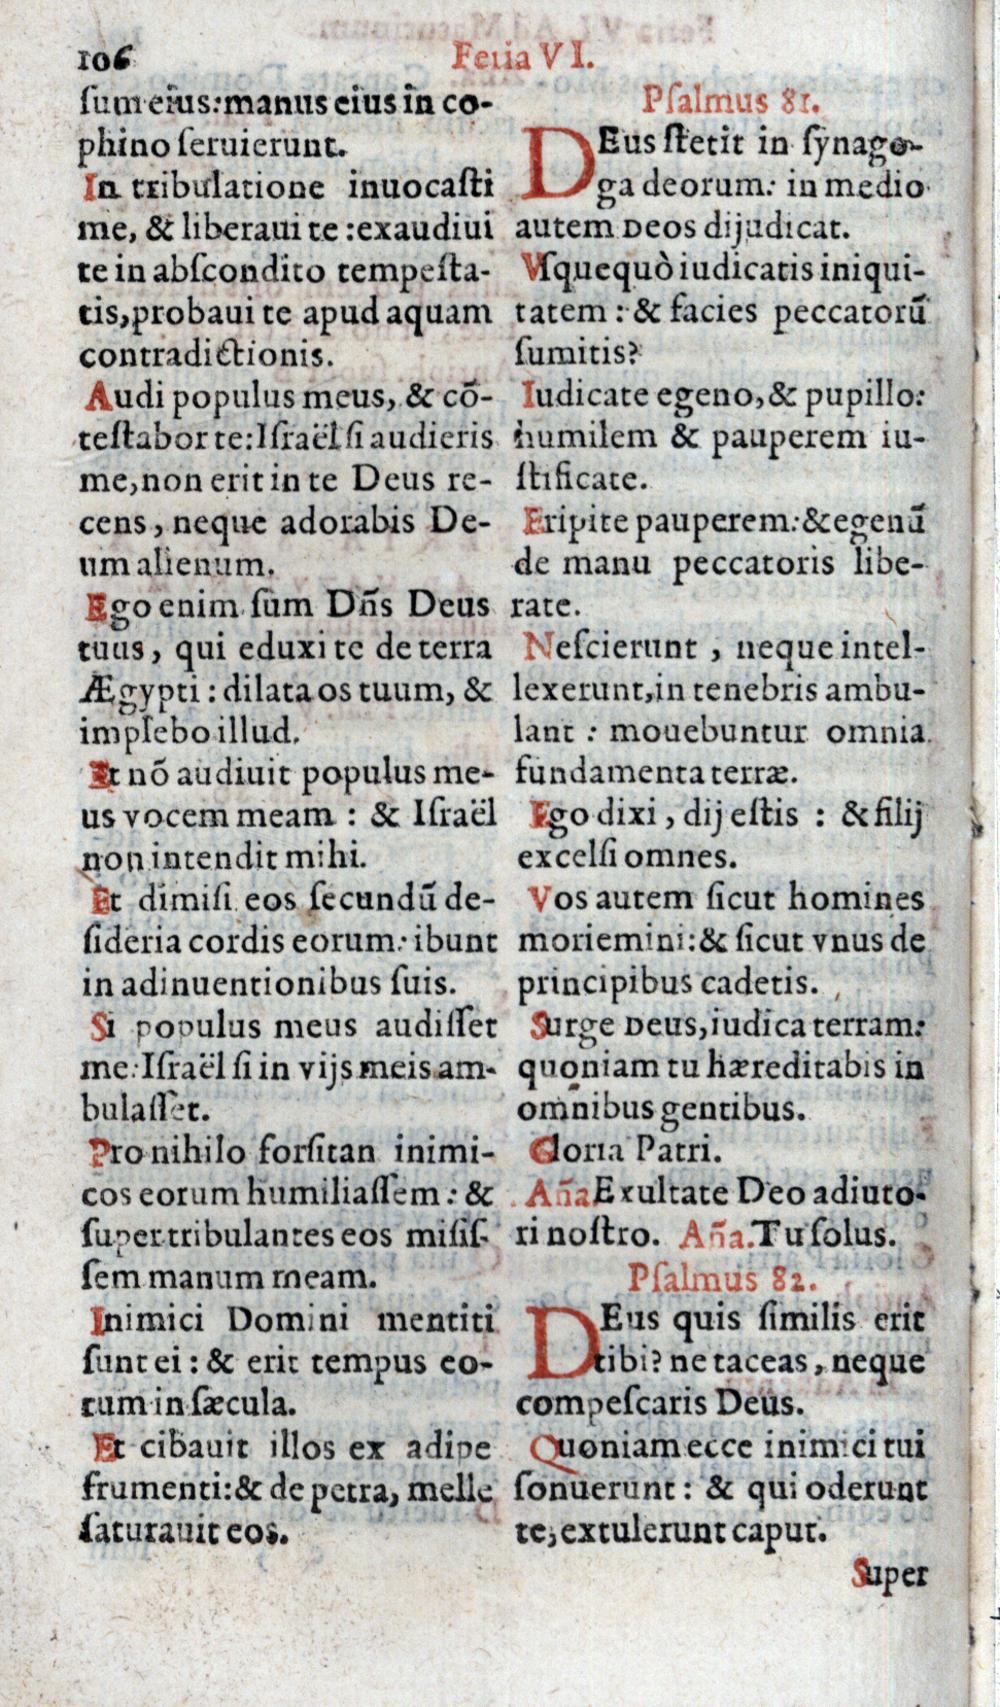 106
Feria VI.
sum eius: manus eius in co-
phino seruierunt.
In tribulatione inuocasti
me, & liberaui te : exaudiui
te in abscondito tempesta-
tis, probaui te apud aquam
contradictionis.
Audi populus meus, & cõ-
testabor te: Israël si audieris
me, non erit in te Deus re-
cens, neque adorabis De-
um alienum.
Ego enim sum Dñs Deus
tuus, qui eduxi te de terra
Ægypti : dilata os tuum, &
implebo illud.
Et nõ audiuit populus me-
us vocem meam : & Israël
non intendit mihi.
Et dimisi eos secundũ de-
sideria cordis eorum: ibunt
in adinuentionibus suis.
Si populus meus audisset
me: Israël si in vijs meis am-
bulasset.
Pro nihilo forsitan inimi-
cos eorum humiliassem : &
super tribulantes eos misis-
sem manum meam.
Inimici Domini mentiti
sunt ei : & erit tempus eo-
rum in sæcula.
Et cibauit illos ex adipe
frumenti: & de petra, melle
saturauit eos.
Psalmus 81.
DEus stetit in synago-
ga deorum: in medio
autem Deos dijudicat.
Vsquequò iudicatis iniqui-
tatem : & facies peccatorũ
sumitis?
Iudicate egeno, & pupillo:
humilem & pauperem iu-
stificate.
Eripite pauperem: & egenũ
de manu peccatoris libe-
rate.
Nescierunt , neque intel-
lexerunt, in tenebris ambu-
lant : mouebuntur omnia
fundamenta terræ.
Ego dixi , dij estis : & filij
excelsi omnes.
Vos autem sicut homines
moriemini: & sicut vnus de
principibus cadetis.
Surge Deus, iudica terram:
quoniam tu hæreditabis in
omnibus gentibus.
Gloria Patri.
Aña. Exultate Deo adiuto-
ri nostro. Aña. Tu solus.
Psalmus 82.
DEus quis similis erit
tibi? ne taceas, neque
compescaris Deus.
Quoniam ecce inimici tui
sonuerunt : & qui oderunt
te, extulerunt caput.
Super